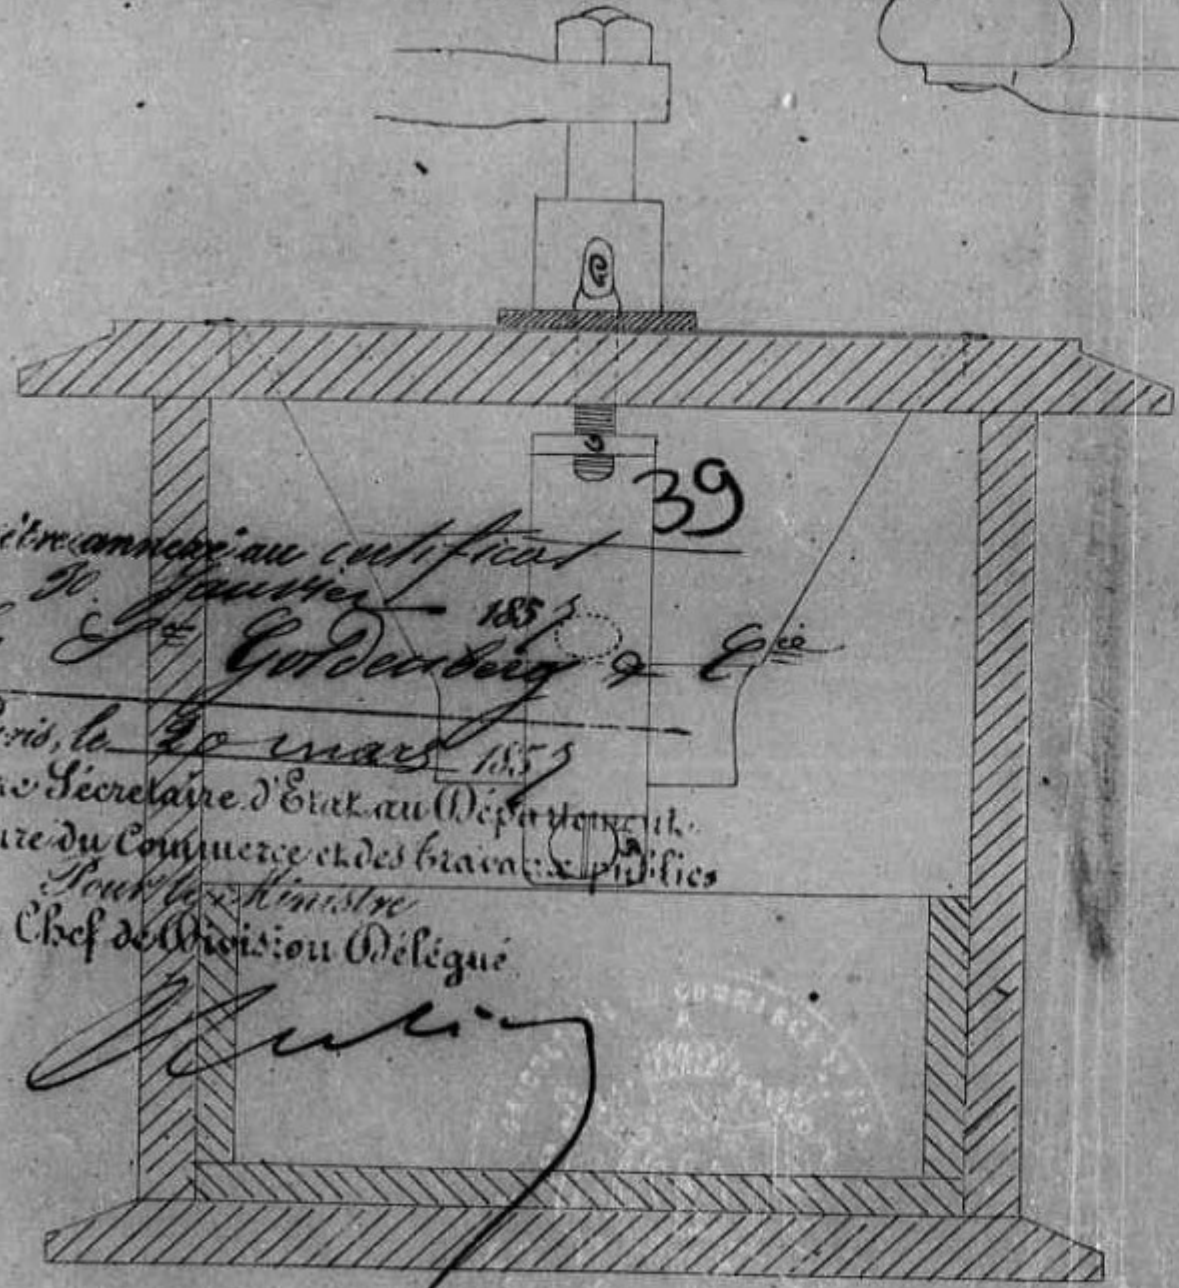 39
être annexé au certificat
30. Janvier 1853
Srs Goldenberg & Cie
Paris, le 20 mars 1853
Secrétaire d'Etat au Département
du Commerce et des travaux publics
Pour le Ministre
Chef de Division Délégué
COMMERCE